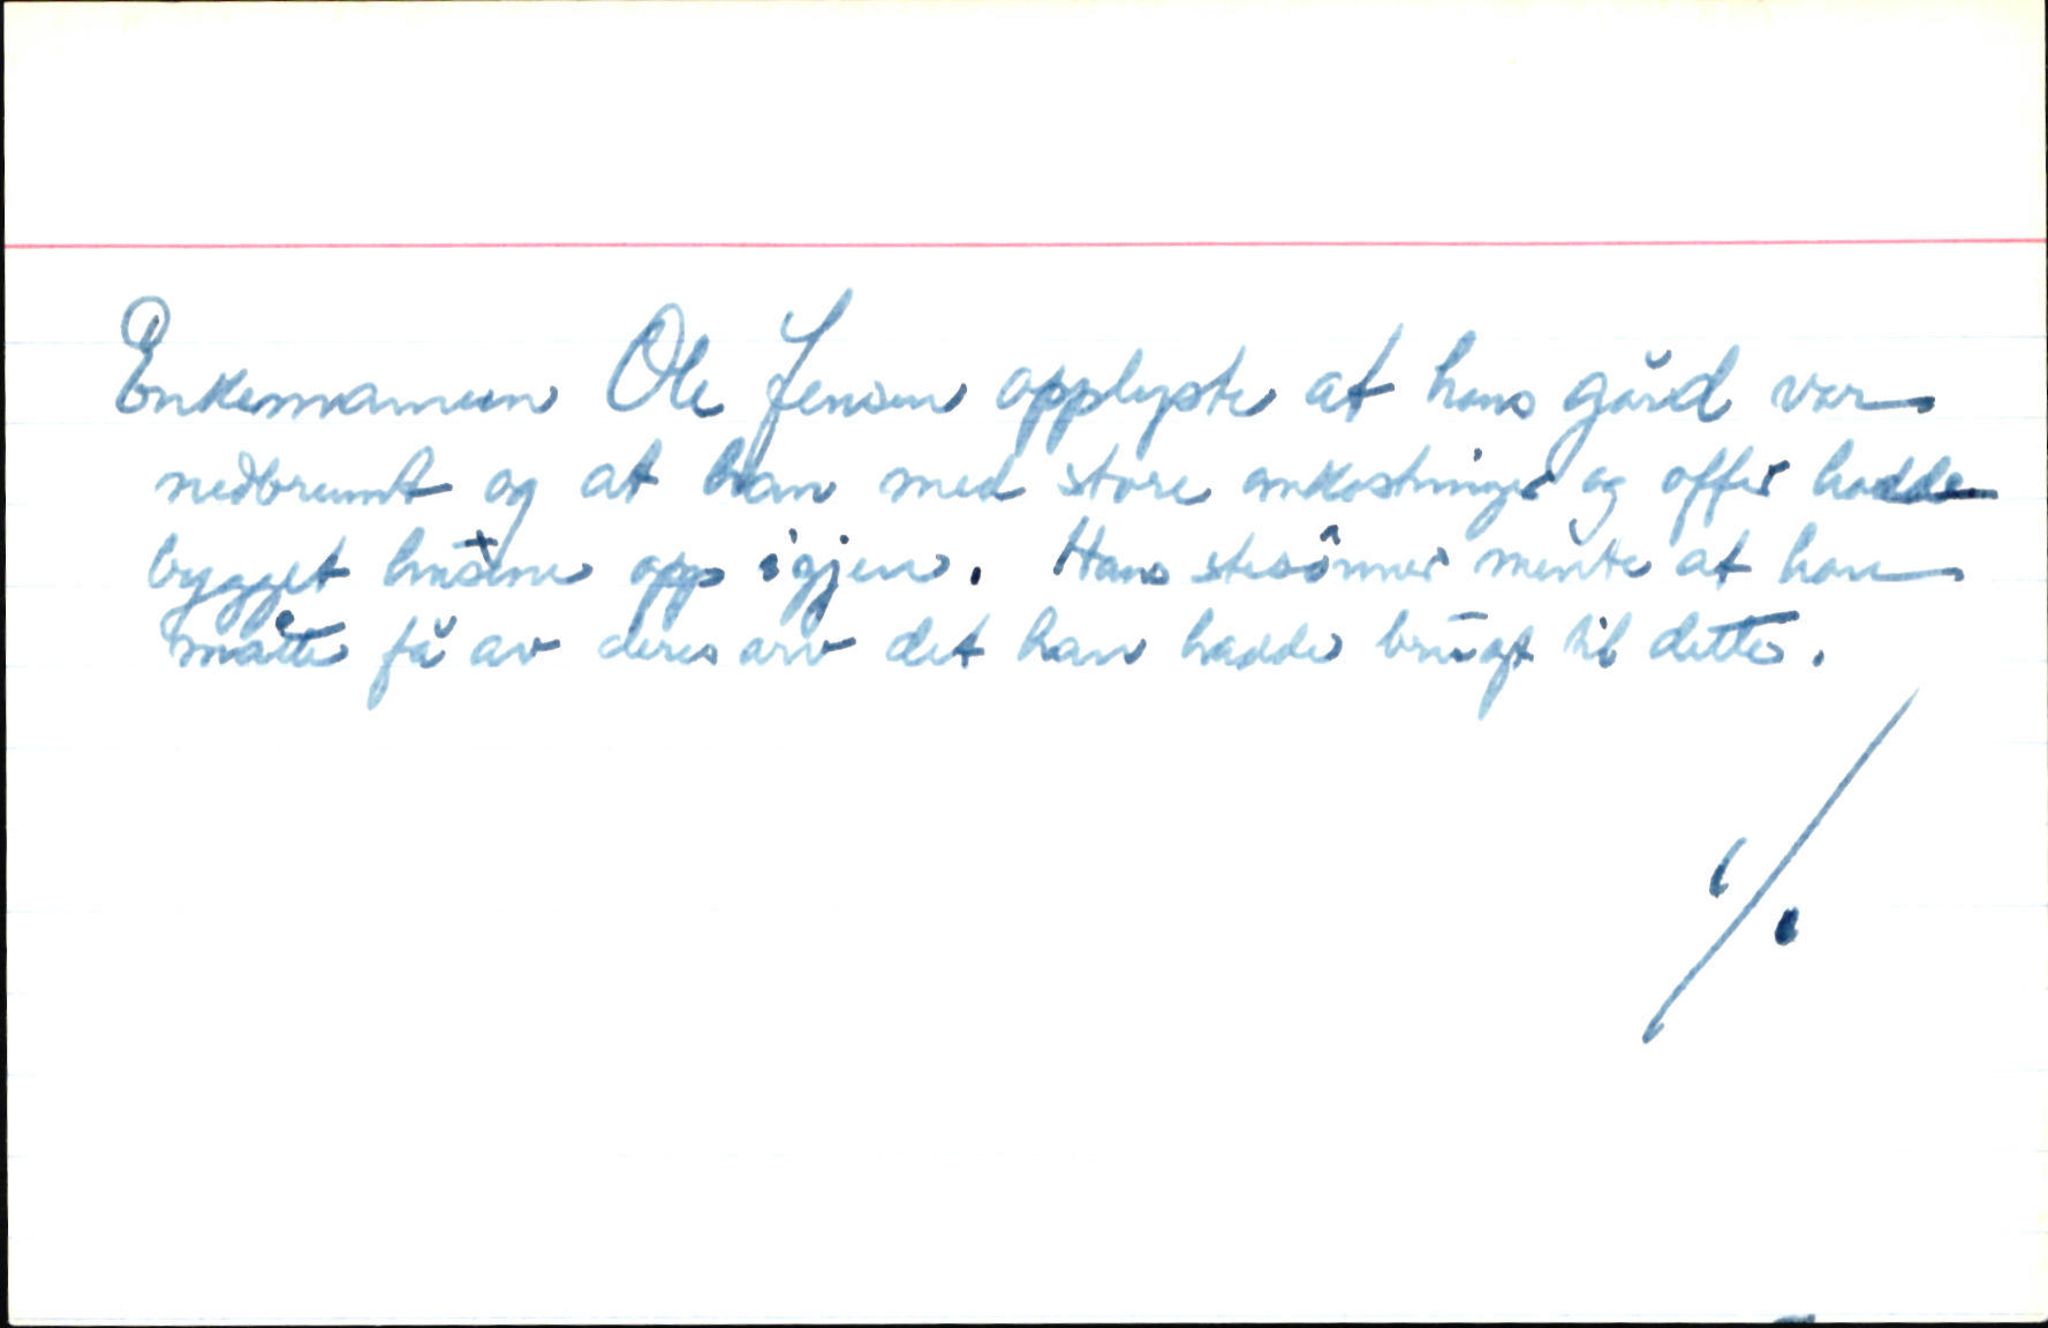 Enkemannen Ole Jensen opplyste at hans gård var
nedbrent og at han med store omkostninger og offer hadde
bygget husene opp igjen. Hans stesønner mente at han
måtte få av deres arv det han hadde brugt til dette.